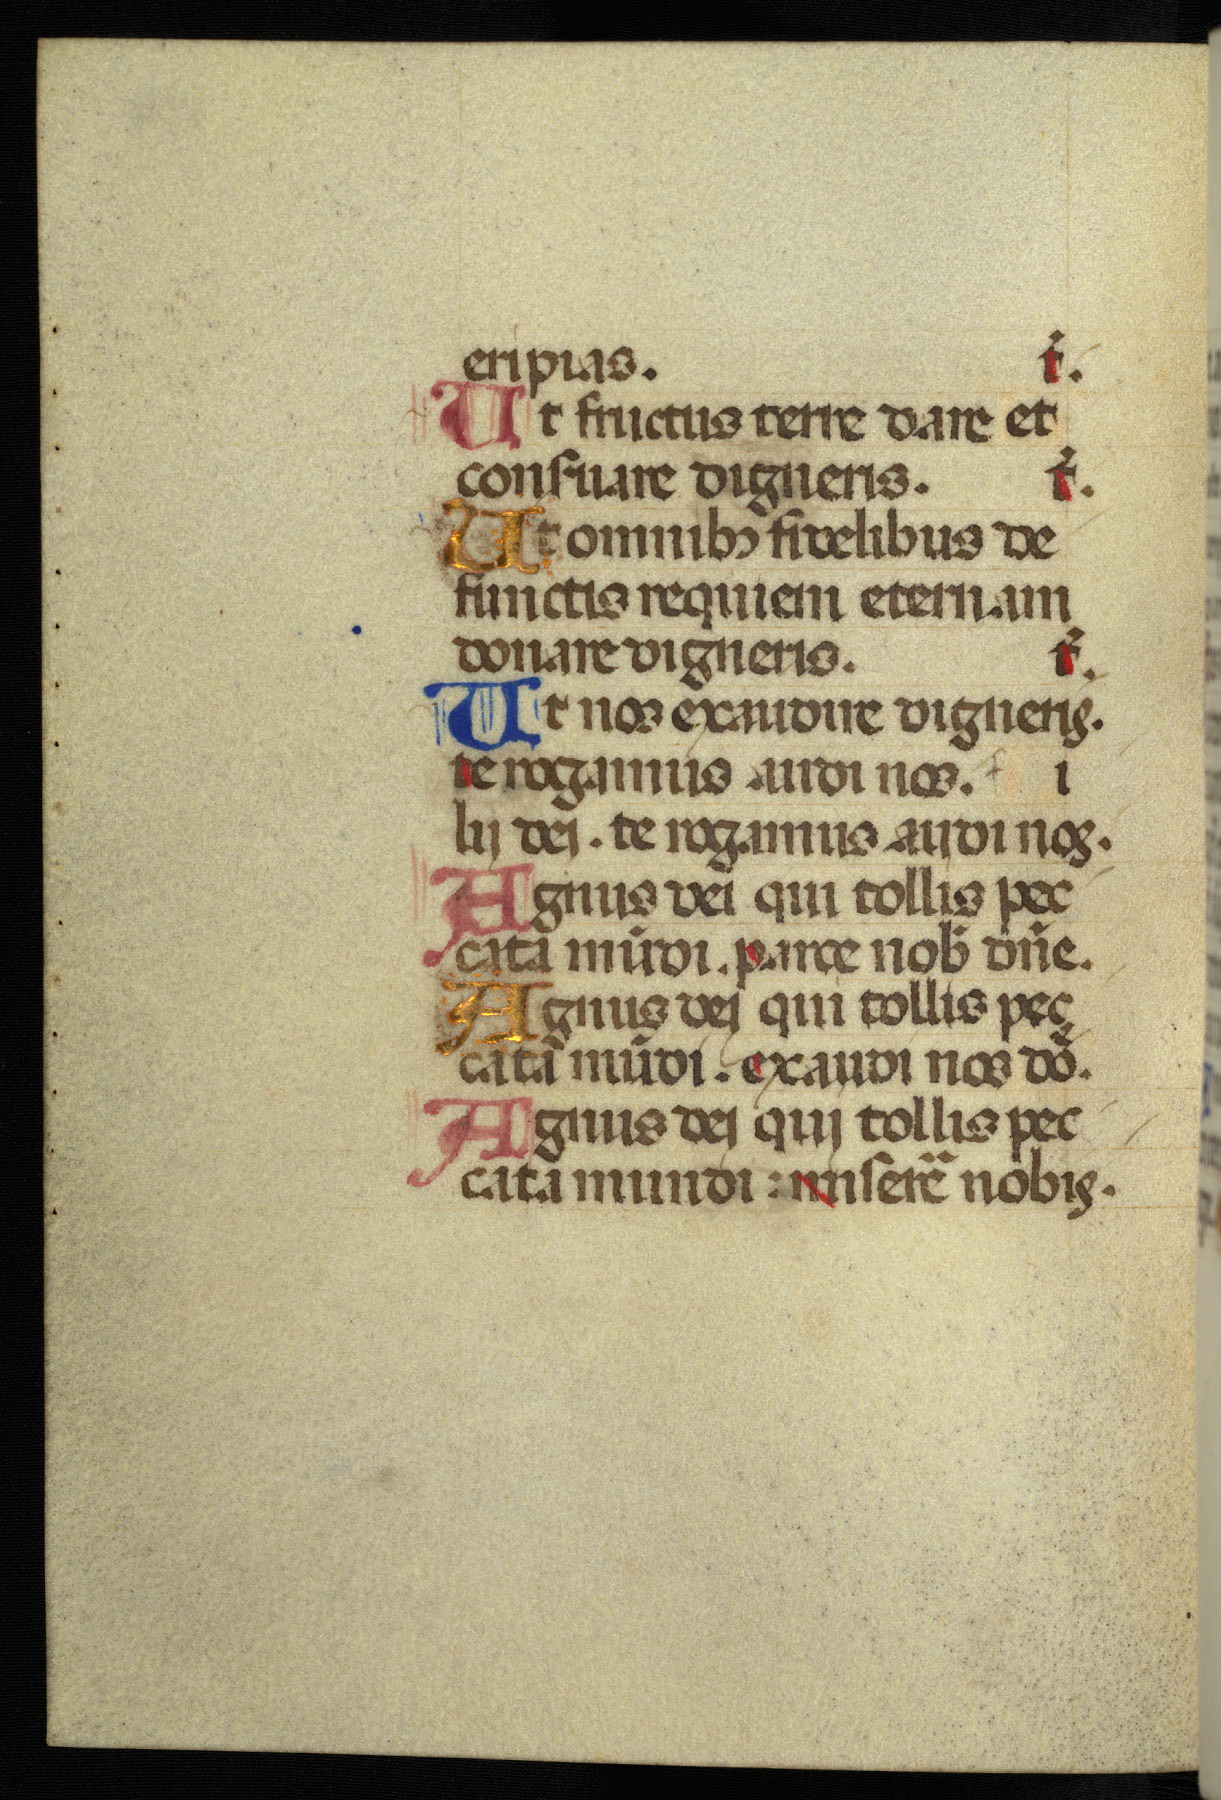 eripias. t̃.
Ut fructus terre dare et
conſuare digneris. t̃.
Ut omnibꝫ fidelibus de
functis requiem eternam
donare digneris. t̃.
Ut nos exaudire digneris.
te rogamus audi nos. f i
lij dej. te rogamus audi nos.
Agnus dei qui tollis pec
cata mũdi. parce nob̃ dñe.
Agnus dej qui tollis pec
cata mũdi. exaudi nos dõ.
Agnus dej quj tollis pec
cata mundi : miſerẽ nobis.